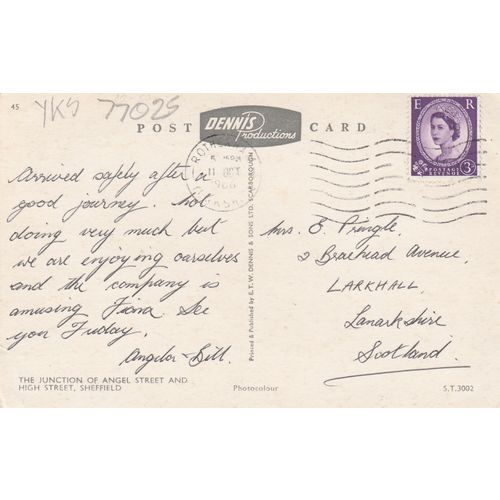 45
YKS 77025
POST DENNIS Productions CARD
E R
POSTAGE REVENUE
3D
ROTHERHAM
5 - PM
11 OCT
1960
YORKSHIRE
Arrived safely after a
good journey. Not
doing very much but
we are enjoying ourselves
and the company is
amusing Fiona. See
you Friday.
Angela & Bill.
Mrs. E. Pringle,
2 Braehead Avenue,
LARKHALL,
Lanarkshire
Scotland.
Printed & Published by E. T. W. DENNIS & SONS LTD. SCARBOROUGH
THE JUNCTION OF ANGEL STREET AND
HIGH STREET, SHEFFIELD
Photocolour
S.T.3002